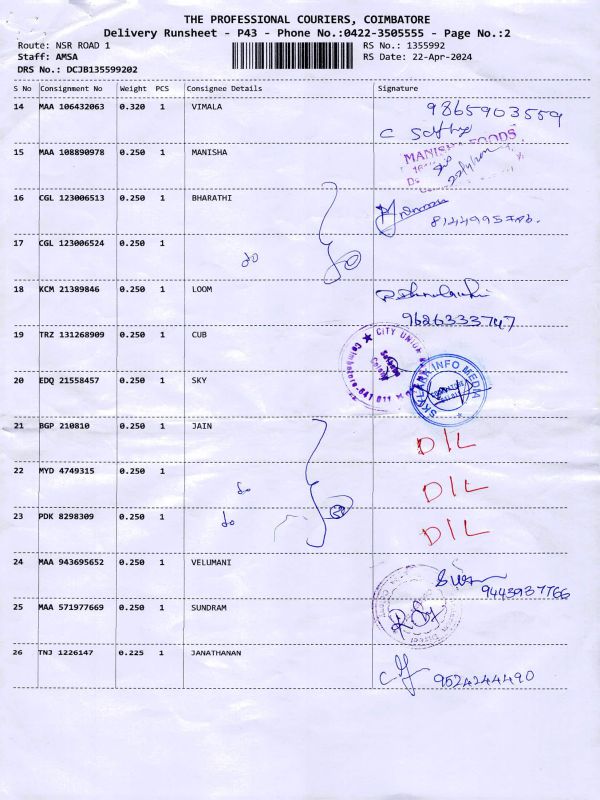 THE PROFESSIONAL COURIERS, COIMBATORE
Delivery Runsheet - P43 - Phone No.:0422-3505555 - Page No.:2
Route: NSR ROAD 1 RS No.: 1355992
Staff: AMSA RS Date: 22-Apr-2024
DRS No.: DCJB135599202
S No Consignment No Weight PCS Consignee Details Signature
14 MAA 106432063 0.320 1 VIMALA 9865903559
15 MAA 108890978 0.250 1 MANISHA MANISHA FOODS
16 CGL 123006513 0.250 1 BHARATHI
17 CGL 123006524 0.250 1 do
18 KCM 21389846 0.250 1 LOOM
9626333747
19 TRZ 131268909 0.250 1 CUB CITY UNION
20 EDQ 21558457 0.250 1 SKY SKYLINK INFO MEDIA
21 BGP 210810 0.250 1 JAIN D/L
22 MYD 4749315 0.250 1 do D/L
23 PDK 8298309 0.250 1 do D/L
24 MAA 943695652 0.250 1 VELUMANI
9443937766
25 MAA 571977669 0.250 1 SUNDRAM
26 TNJ 1226147 0.225 1 JANATHANAN 9524244490